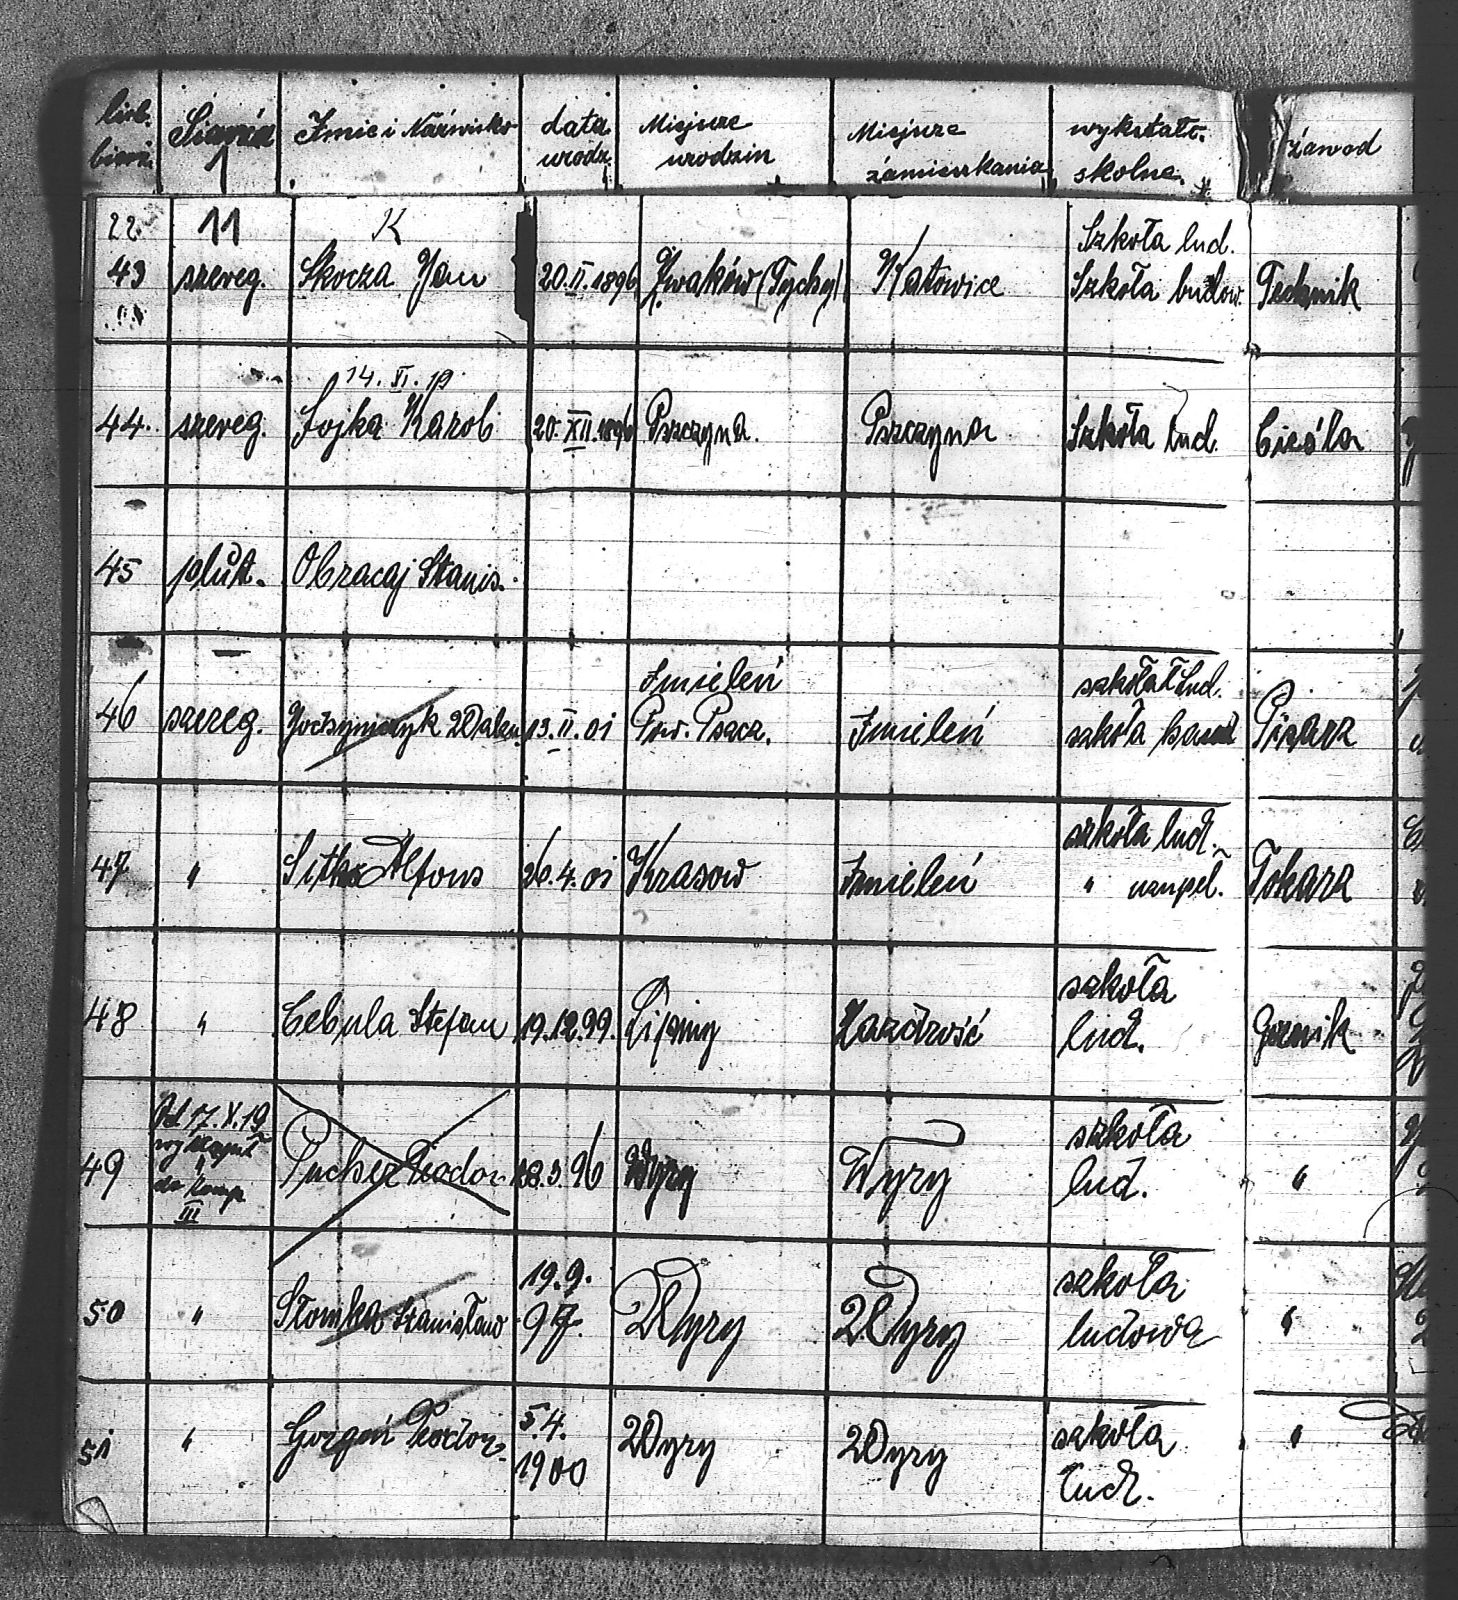 licb. Imię i Nazwisko data Miejsce Miejsce wykształc. zawod
urodz. urodzin zamieszkania skolne
22 11 K Szkoła lud.
43 szereg. Skocza Jan 20.II.1896 Żwaków (Tychy) Katowice Szkoła budow. Technik
14. XI. 19
44. szereg. Fojka Karol 20.XII.1896 Pszczyna. Pszczyna Szkoła lud. Cieśla
45 plut. Obracaj Stanis.
Imieleń szkoła lud.
46 szereg. 13.II.01 Pow. Pszcz. Imieleń szkoła Pisarz
szkoła lud.
47 " Sitko Alfons 26.4.01 Krasow Imieleń " uzupeł. Tokarz
szkoła
48 " Cebula Stefan 19.12.99. Lipiny Zazdrość lud. Gornik
Od 17.X.19 szkoła
49 " Teodor 3.96 Wyry Wyry lud. "
do Komp.
III
19.9. szkoła
50 " Słomka Stanisław 97. Wyry Wyry ludowa "
5.4. szkoła
51 " Gorgoń Teodor 1900 Wyry Wyry lud. "